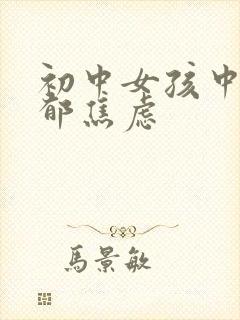 初中女孩中
郁焦虑
馬景敏